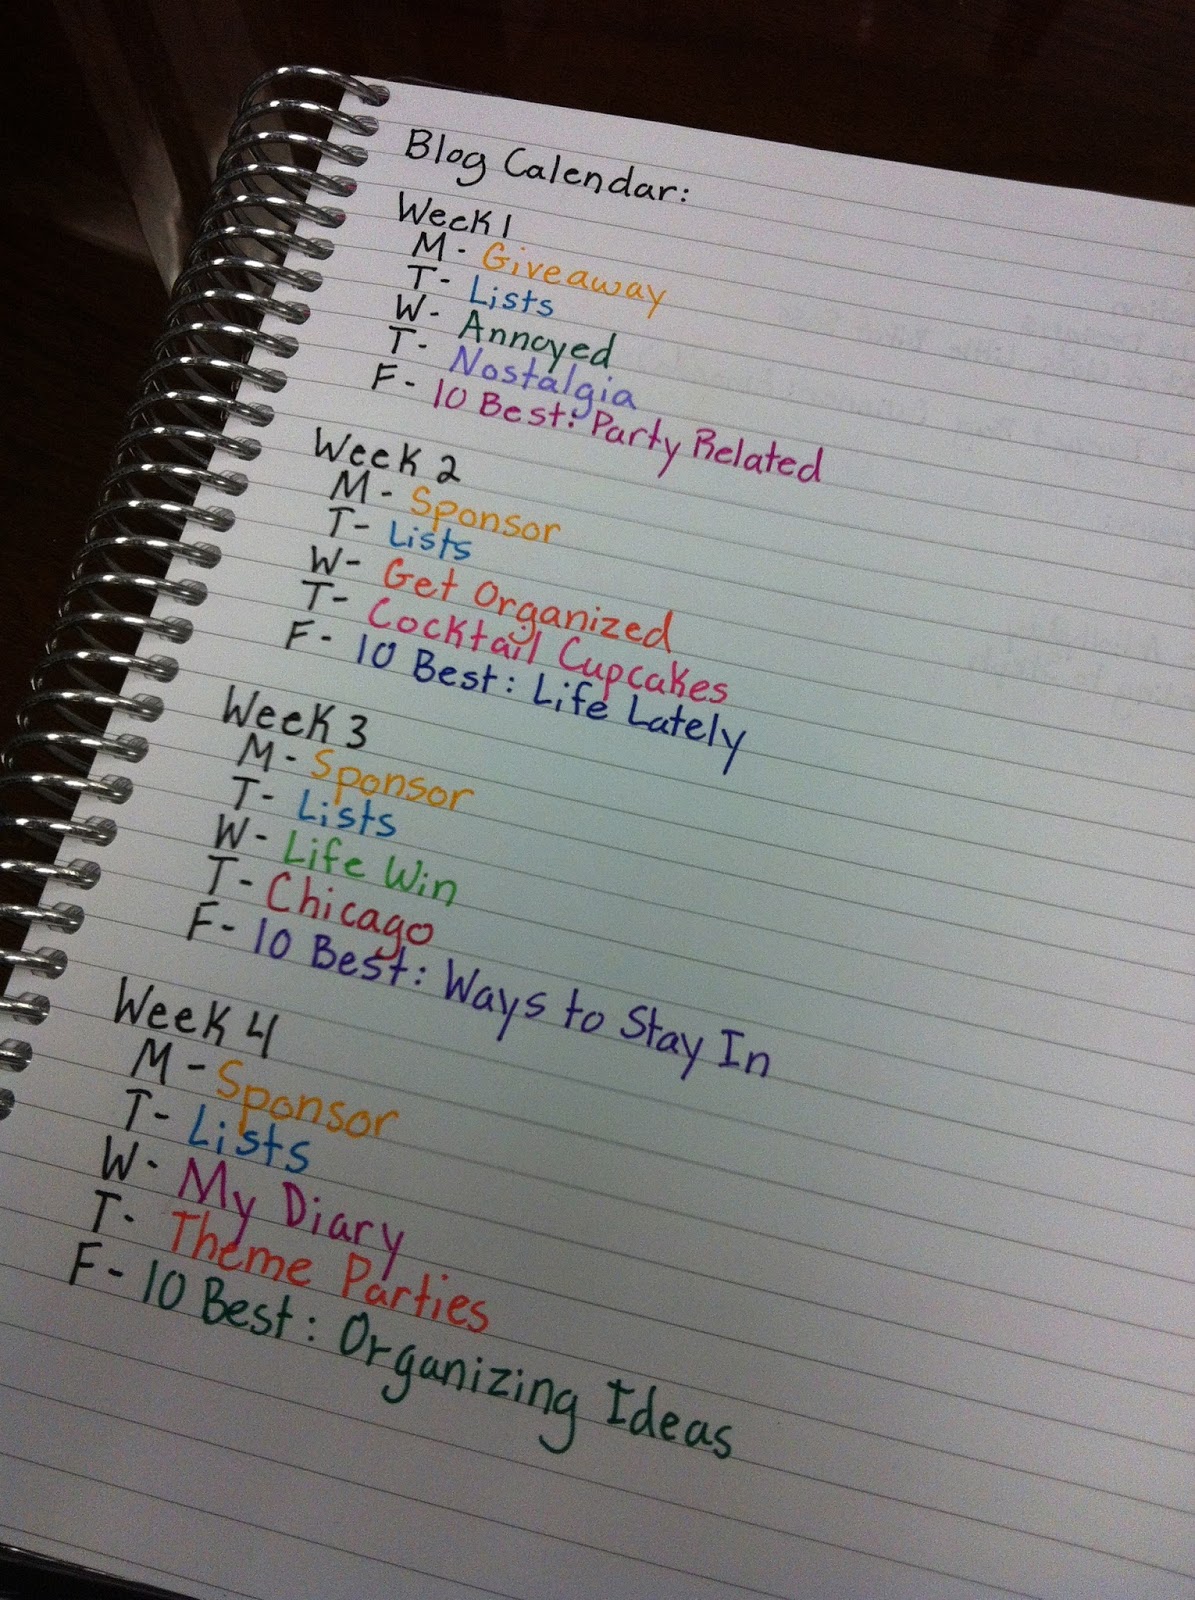 Blog Calendar:
Week 1
M - Giveaway
T - Lists
W - Annoyed
T - Nostalgia
F - 10 Best: Party Related
Week 2
M - Sponsor
T - Lists
W - Get Organized
T - Cocktail Cupcakes
F - 10 Best: Life Lately
Week 3
M - Sponsor
T - Lists
W - Life Win
T - Chicago
F - 10 Best: Ways to Stay In
Week 4
M - Sponsor
T - Lists
W - My Diary
T - Theme Parties
F - 10 Best: Organizing Ideas